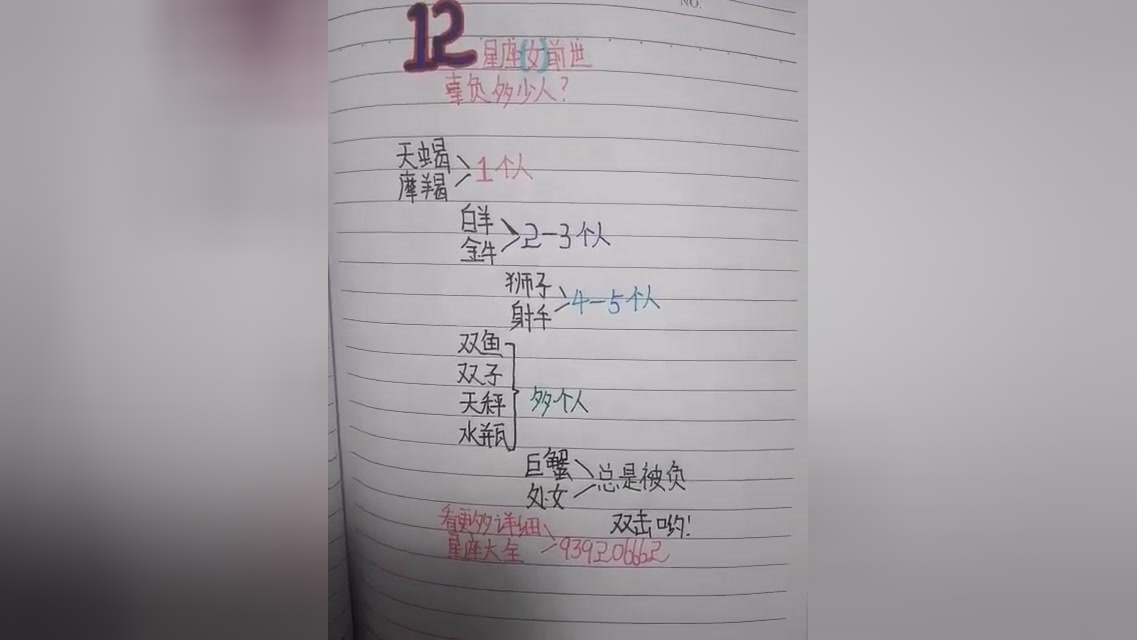 NO.
12星座(女)前世
辜负多少人?
天蝎
摩羯
1个人
白羊
金牛
2-3个人
狮子
射手
4-5个人
双鱼
双子
天秤
水瓶
多个人
巨蟹
处女
总是被负
看更多详细
星座大全
双击哟!
939206662